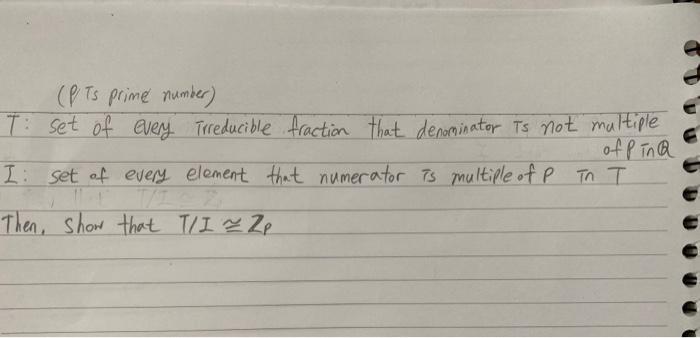 (P is prime number)
T: set of every irreducible fraction that denominator is not multiple
of P in Q
I: set of every element that numerator is multiple of P in T
Then, show that T/I ≅ Zp